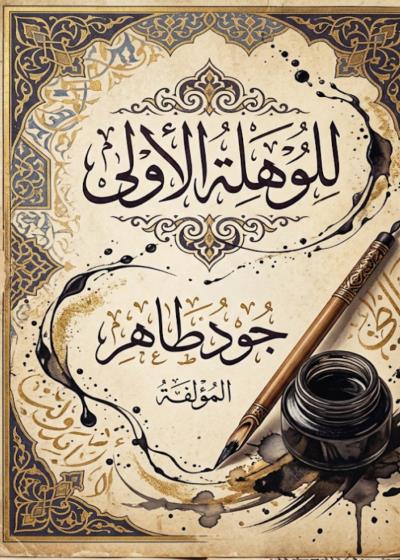 لِلْوَهَلَةُ الأُولى
جُودُ طَاهِرِ
المُؤَلفَةُ